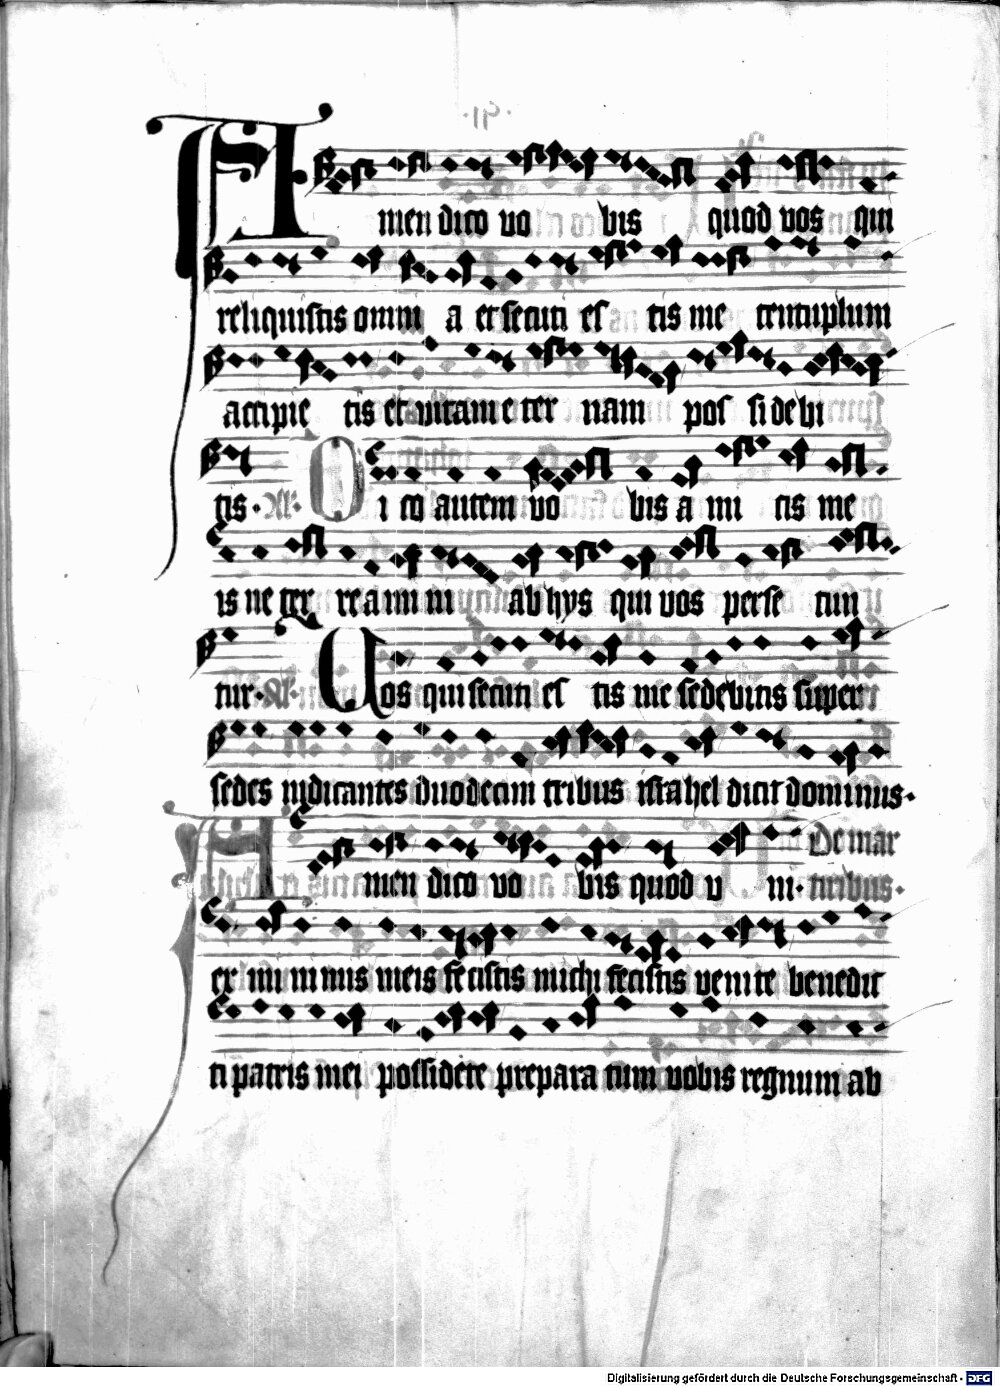 Amen dico vo bis quod vos qui
reliquistis omni a et secuti es tis me centuplum
accipie tis et vitam e ter nam pos si de bi
tis · Al · Dico autem vo bis a mi cis me
is ne ter re a mi ni ab hys qui vos perse cun
tur · Al · Vos qui secuti es tis me sedebitis super
sedes iudicantes duodecim tribus israhel dicit dominus ·
De mar
Amen dico vo bis quod v ni · tiribus ·
ex mi ni mis meis fecistis michi fecistis venite benedic
ti patris mei possidete prepara tum vobis regnum ab
Digitalisierung gefördert durch die Deutsche Forschungsgemeinschaft - DFG